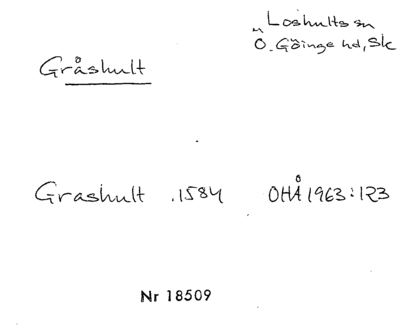 Loshults sn
Ö. Göinge hd, Sk
Gråshult
Grashult .1584 OHÅ 1963:123
Nr 18509